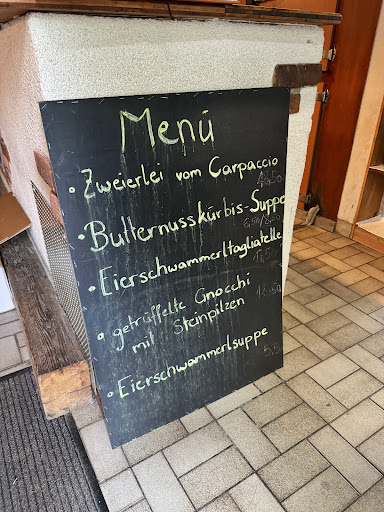 Menü
• Zweierlei vom Carpaccio
• Butternusskürbis-Suppe
• Eierschwammerltagliatelle
• getrüffelte Gnocchi
mit Steinpilzen
• Eierschwammerlsuppe
5,5